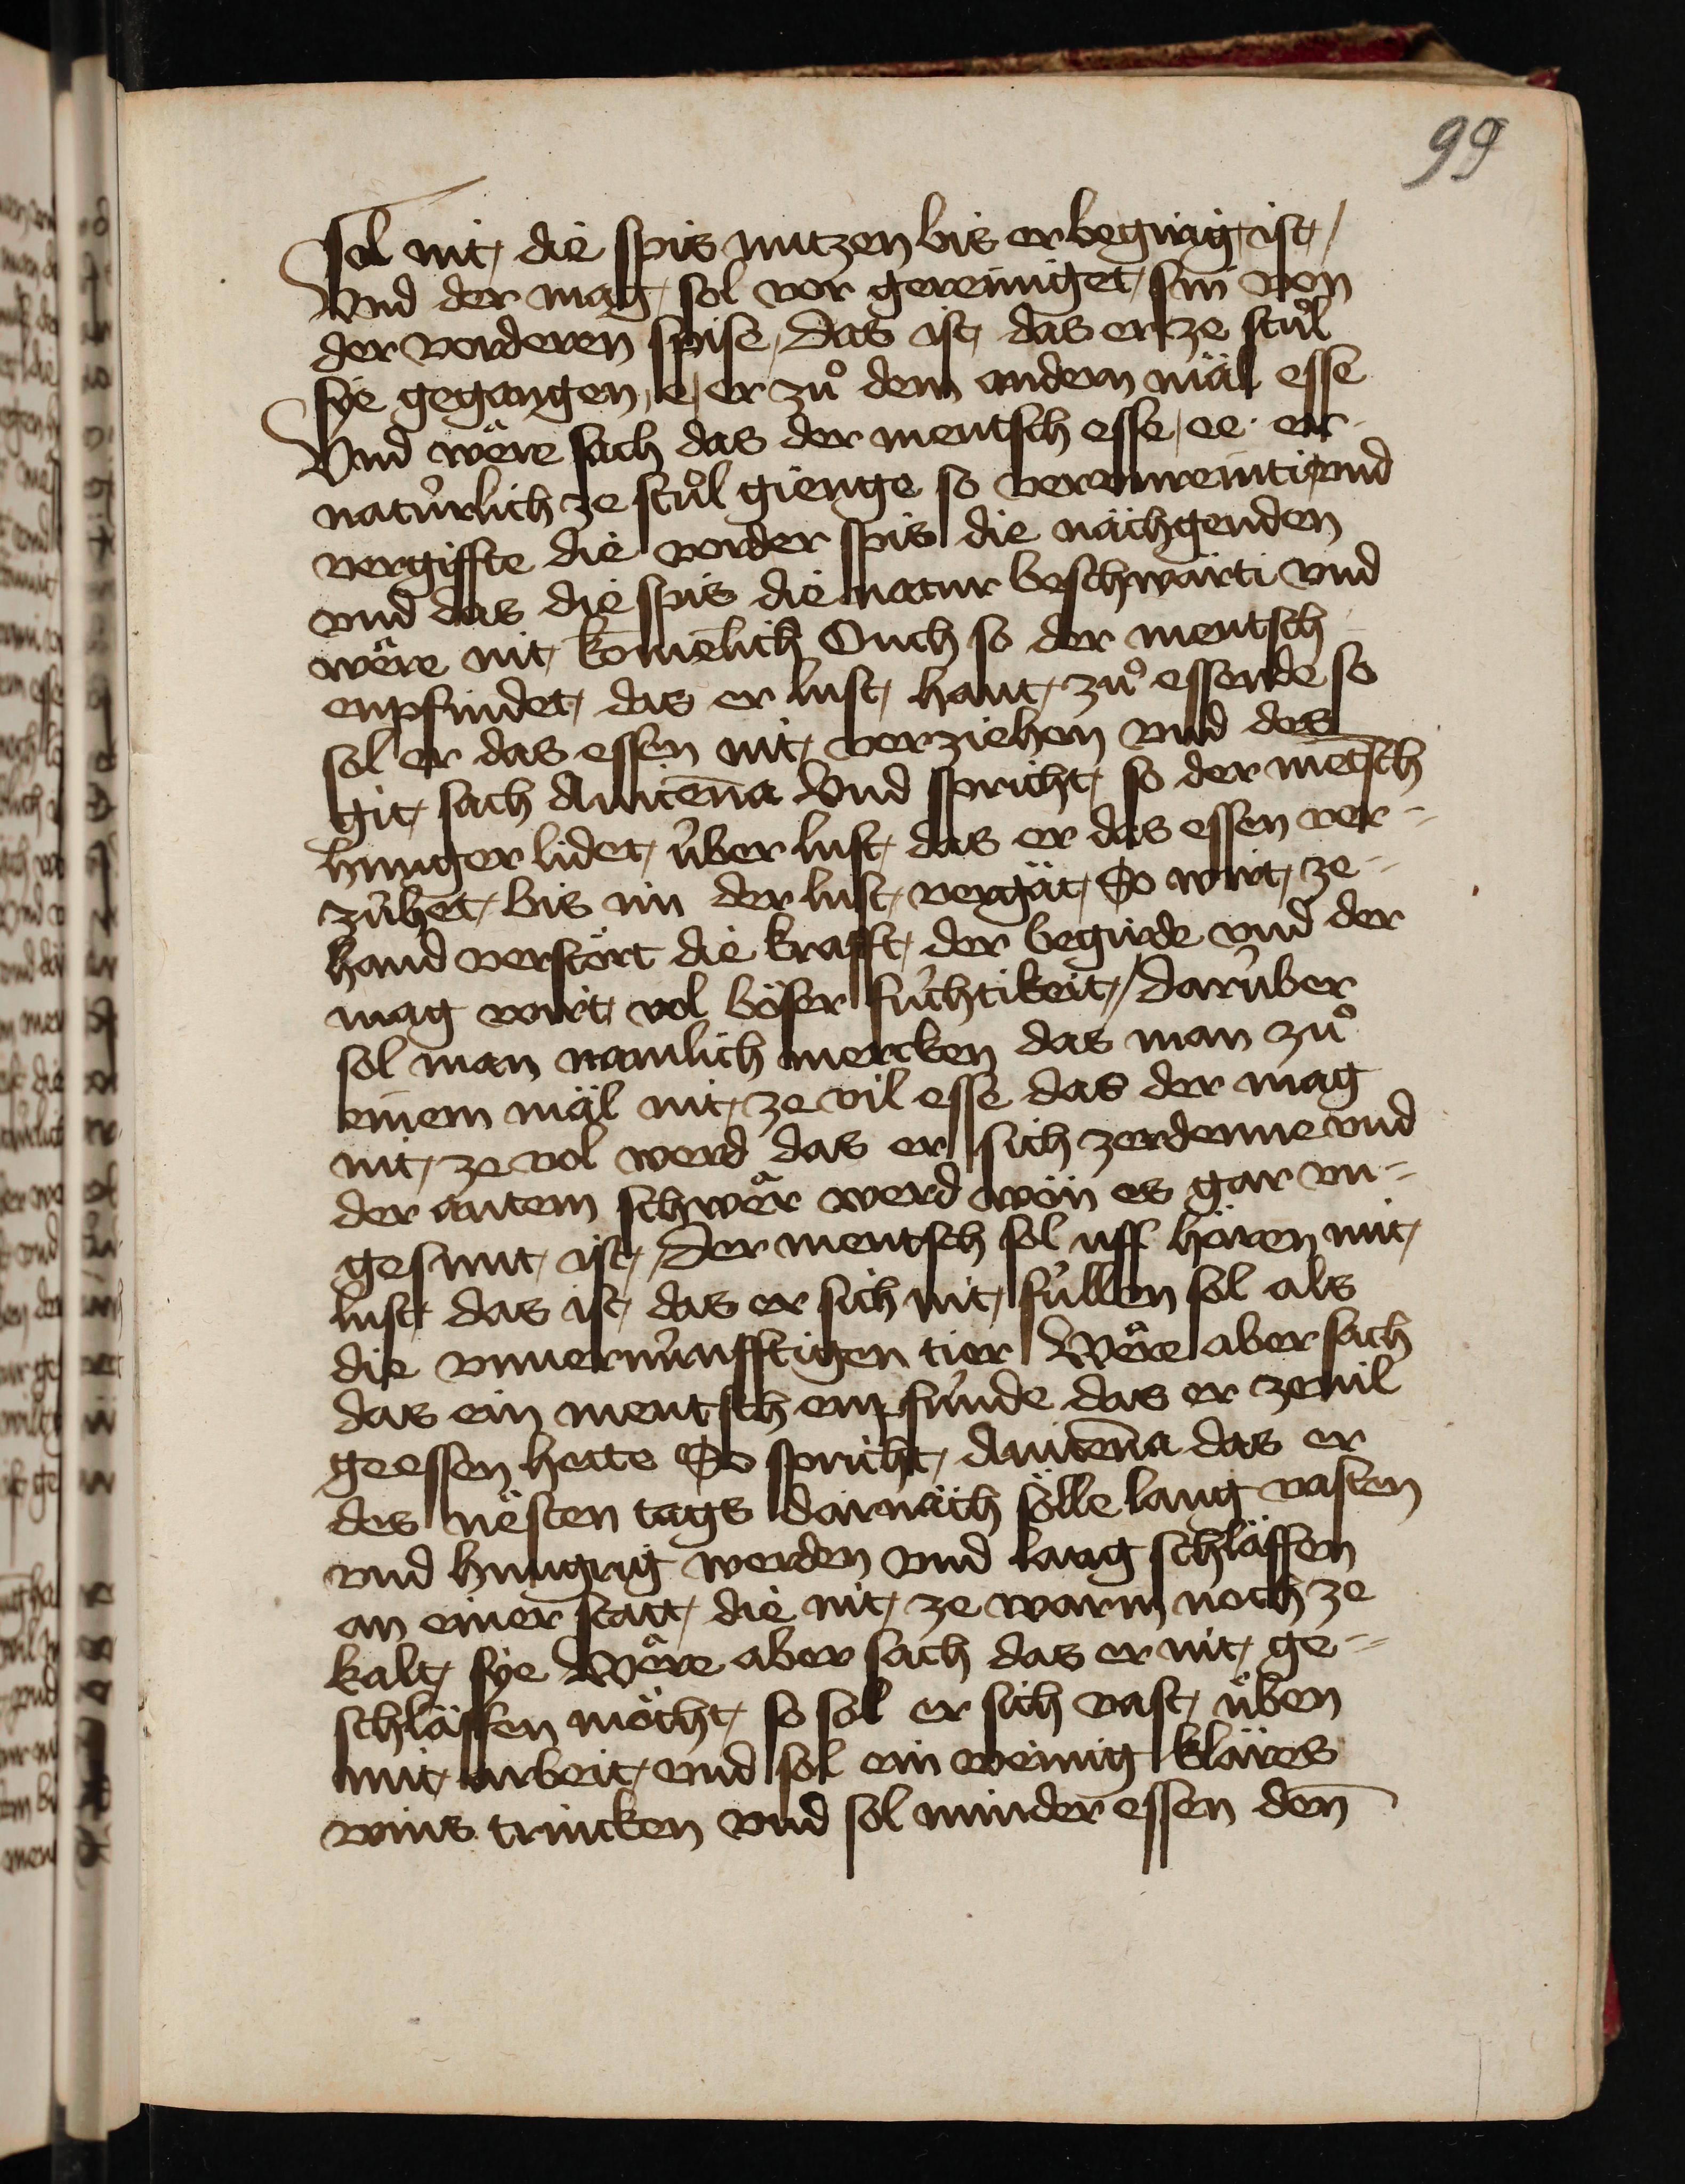 99
sol nit die spis nutzen bis er begirig ist /
Vnd der mag sol vor gereiniget sin von
der vorderen spise, das ist das er ze stůl
sÿe gegangen, e, er zů dem andern mäl esse
Vnd wëre sach das der mentsch esse, ee er
natúrlich ze stůl gienge so verunreinti vnd
vergiffte die vorder spis die nächgenden
vnd das die spis die natur beschwärti vnd
wëre nit komēlich Ouch so der mentsch
enpfindet das er lust haut zů essende so
sol er das essen nit verziehen vnd des
git sach Auicēna Vnd spricht so der mētsch
hunger lidet úber lust das er das essen ver-
zúhet, bis im der lust vergät, So wirt ze-
hand verstört die krafft der begirde vnd der
mag wirt vol böser fúchtikeit // darúber
sol man namlich mercken das man zů
einem mäl nit ze vil esse das der mag
nit ze vol werd das er sich zerdenne vnd
der autem schwër werd won es gar vn-
gesunt ist, Der mentsch sol uff hören mit
lust das ist das er sich nit fúllen sol als
die vnuernúnfftigen tier Wëre aber sach
das ein mentsch empfunde das er ze uil
geessen hette So spricht Auicēna das er
des nësten tags darnäch sölle lang vasten
vnd hungrig werden vnd lang schläffen
an einer statt, die nit ze warm noch ze
kalt sÿe Wëre aber sach das er nit ge-
schläffen möcht, so sol er sich vast úben
mit arbeit vnd sol ein weinig kläres
wins trincken vnd sol minder essen den̄